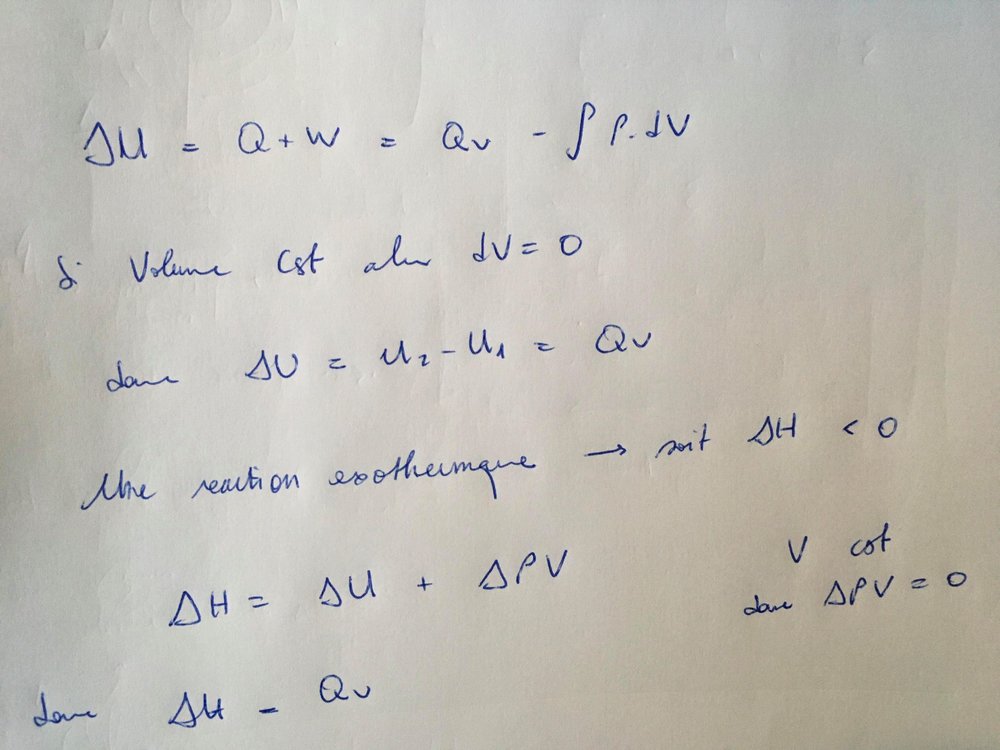 ΔU = Q + W = Qv - ∫ P.dV
Si Volume Cst alors dV = 0
donc ΔU = U2 - U1 = Qv
Une reaction exothermique → soit ΔH < 0
ΔH = ΔU + ΔPV
V cst
donc ΔPV = 0
donc ΔH = Qv